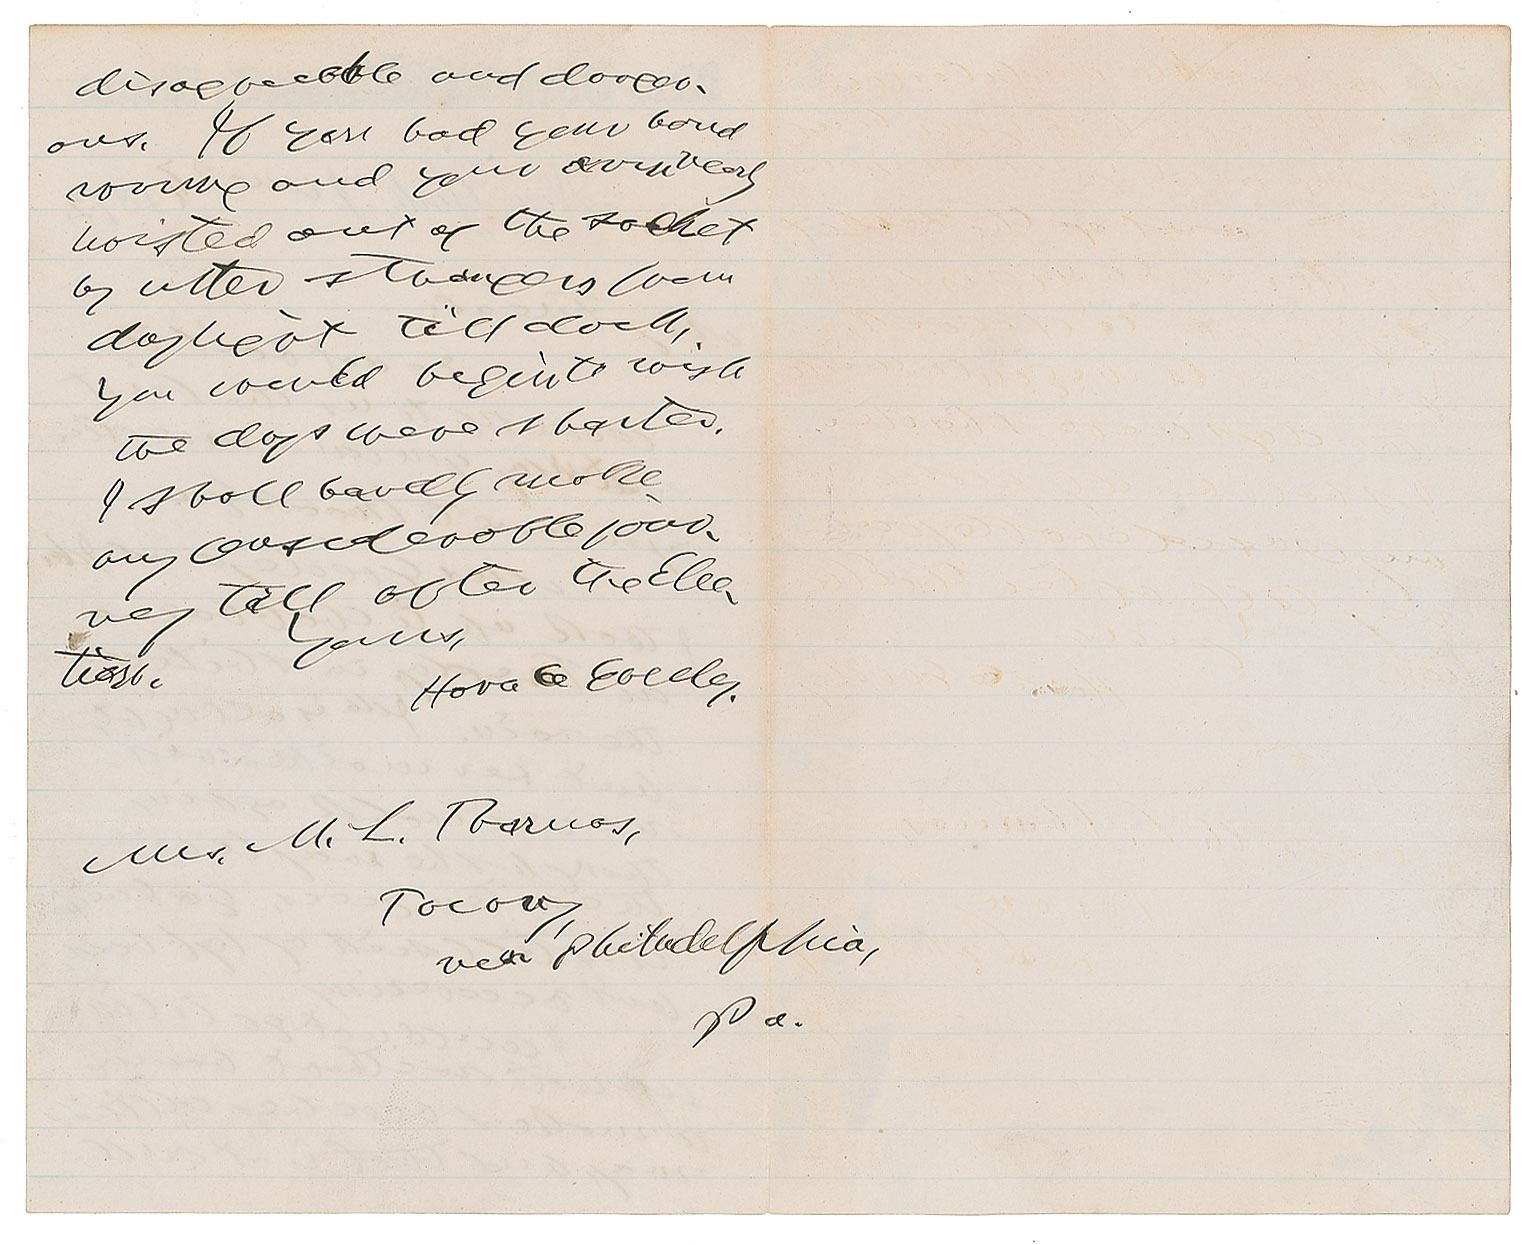 disagreeable and danger-
ous. If you had your hand
wrung and your arm nearly
hoisted out of the socket
by utter strangers from
daylight till dark,
you would begin to wish
the days were shorter.
I shall hardly make
any considerable jour-
ney till after the Elec-
tion.
Yours,
Horace Greeley.
Mrs. M. L. Thomas,
Tacony,
near Philadelphia,
Pa.